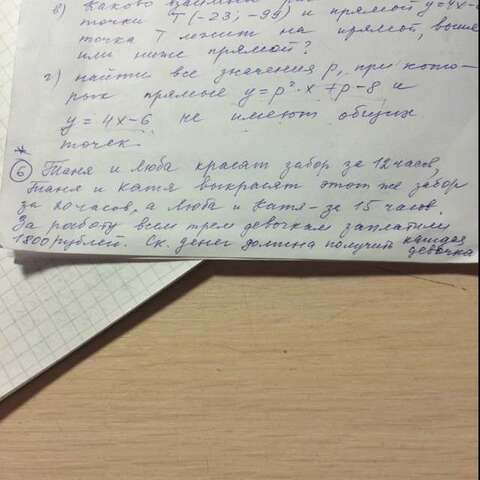 в) Каково
точки T(-23; -99) и прямой y=4x-
точка T лежит на прямой, выше
или ниже прямой?
г) найти все значения p, при кото-
рых прямые y=p²·x+p-8 и
y=4x-6 не имеют общих
точек
*
⑥ Таня и Люба красят забор за 12 часов,
Таня и Катя выкрасят этот же забор
за 20 часов, а Люба и Катя - за 15 часов.
За работу всем трем девочкам заплатили
1800 рублей. Ск. денег должна получить каждая
девочка